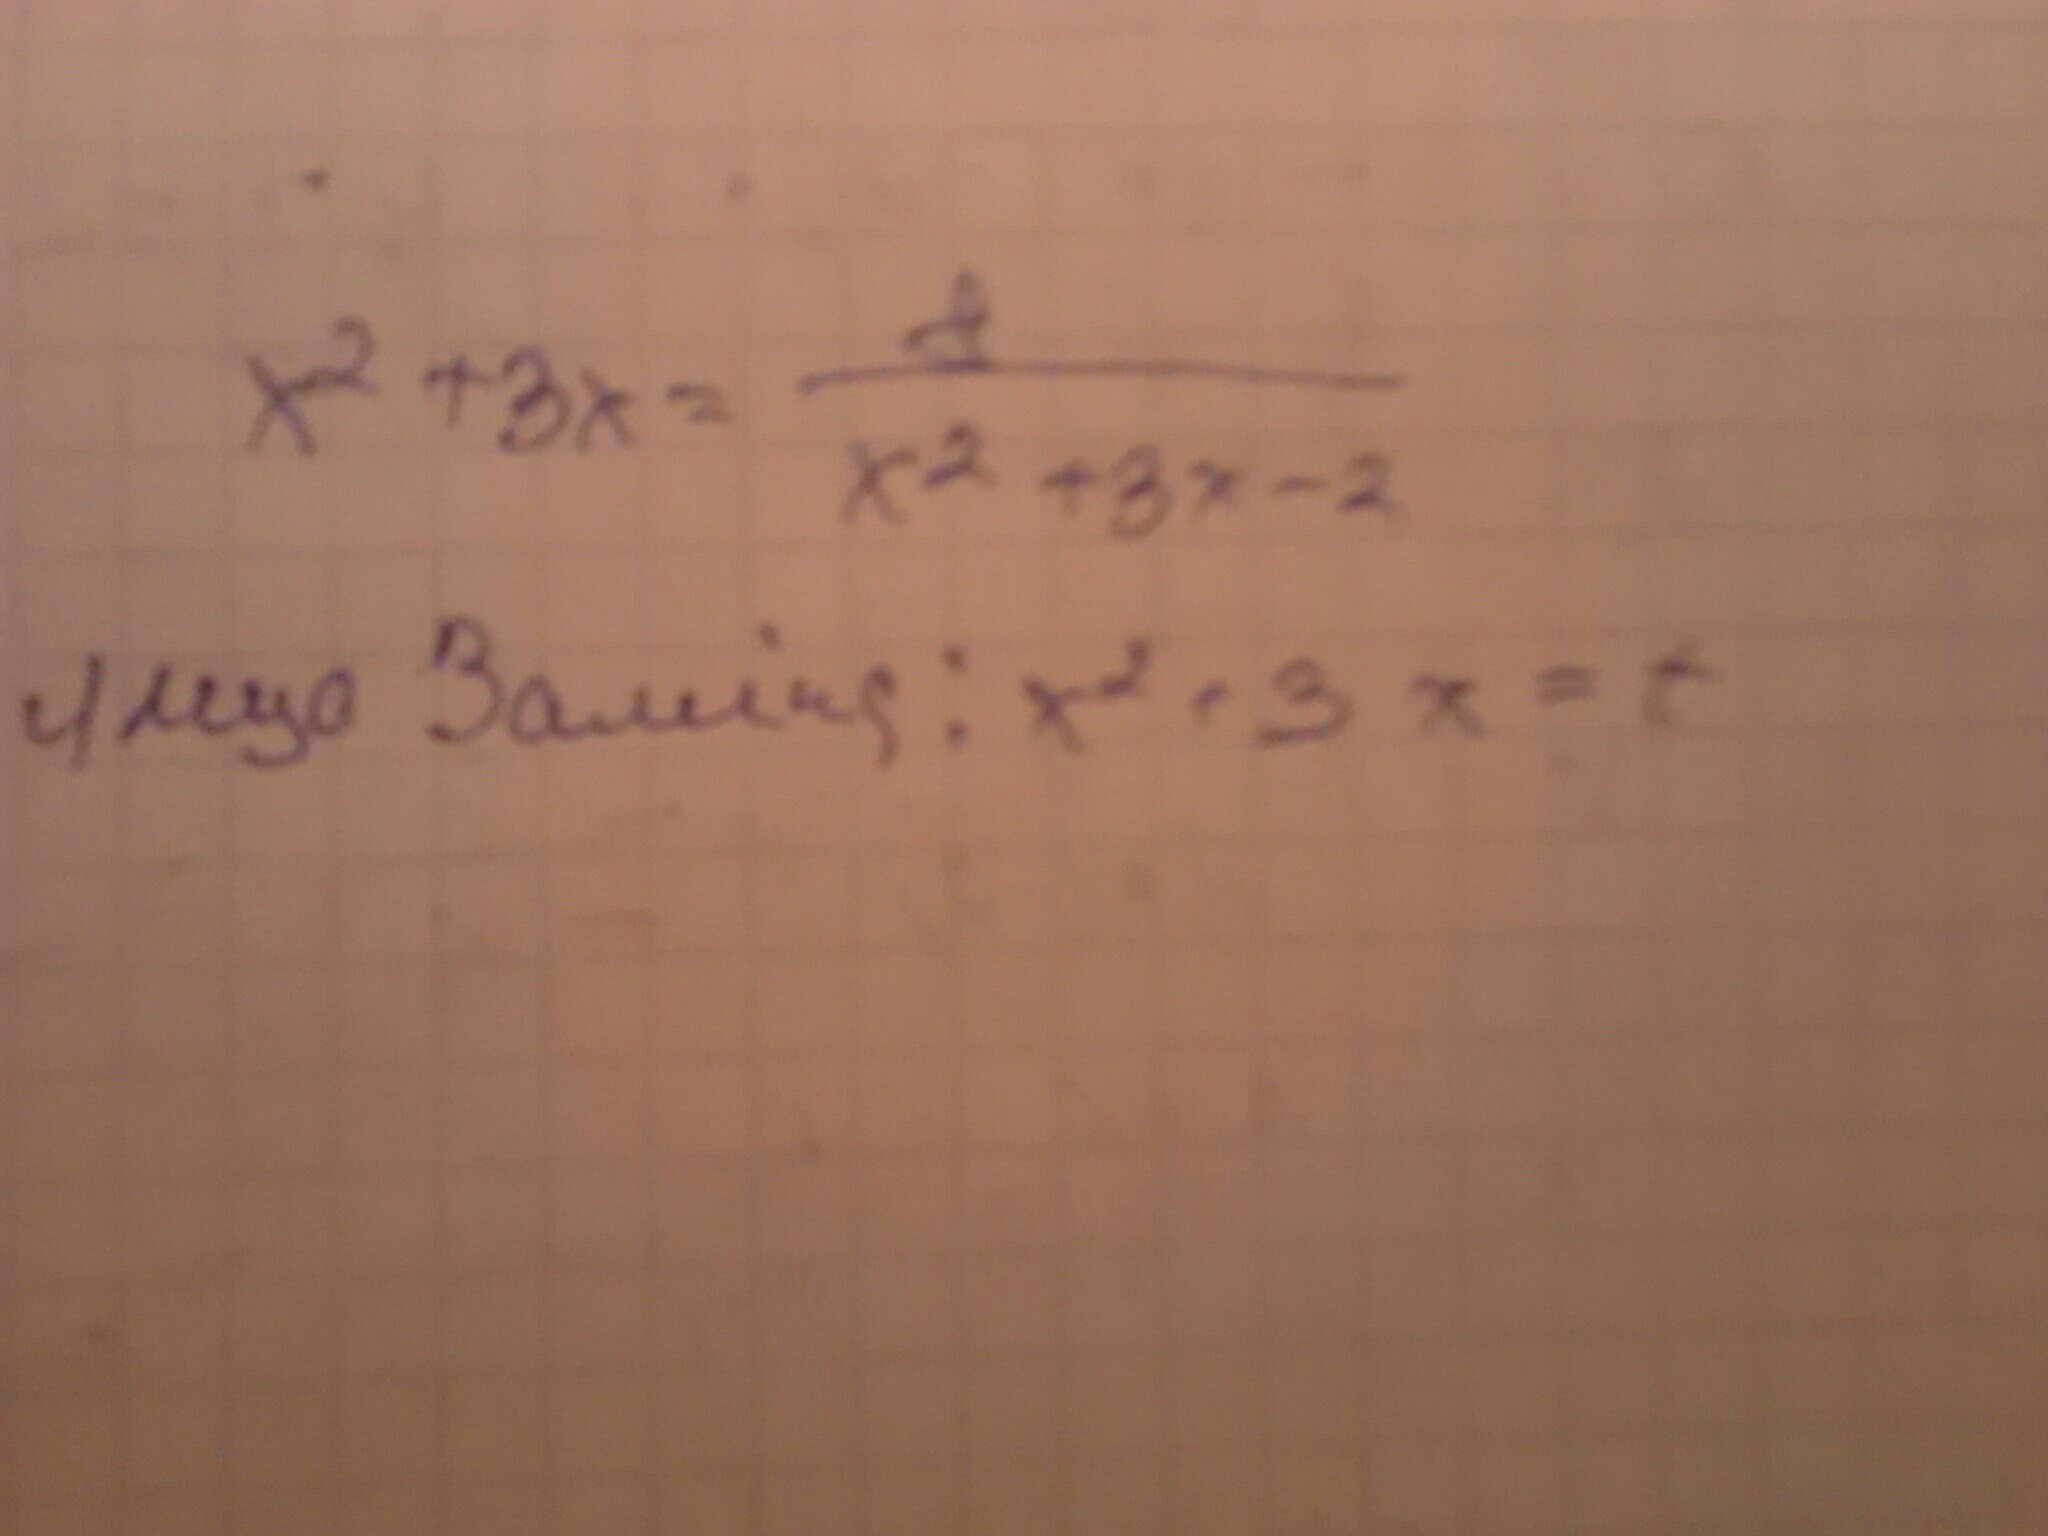 x² + 3x = 1/(x² + 3x - 2)
Заміна: x² + 3x = t